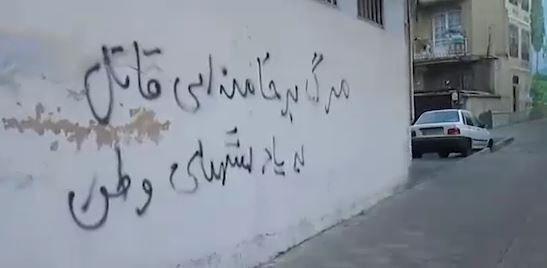 مرگ بر خامنه‌ایی قاتل
به یاد شهدای وطن